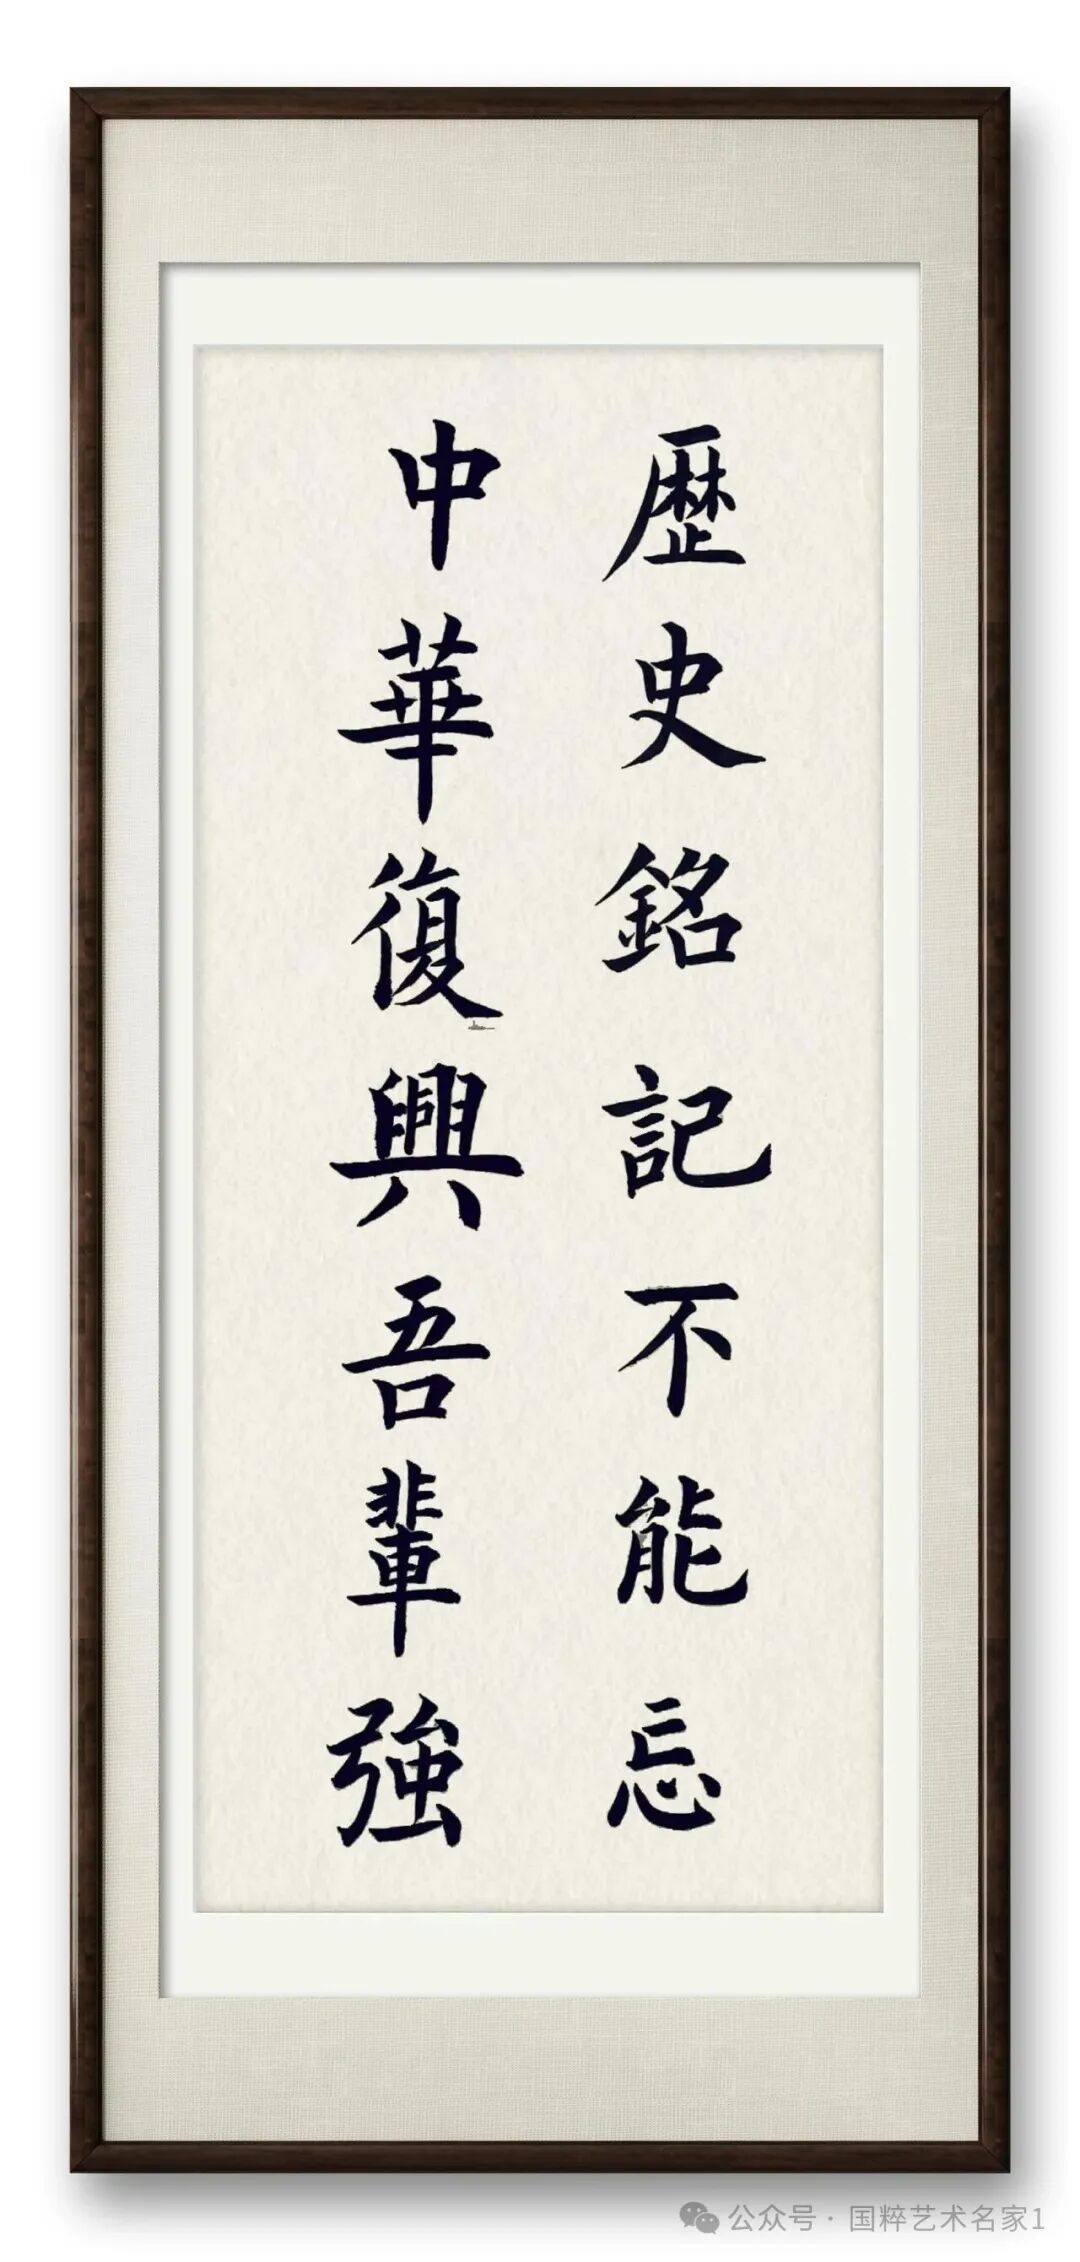 歷史銘記不能忘
中華復興吾輩強
公众号·国粹艺术名家1